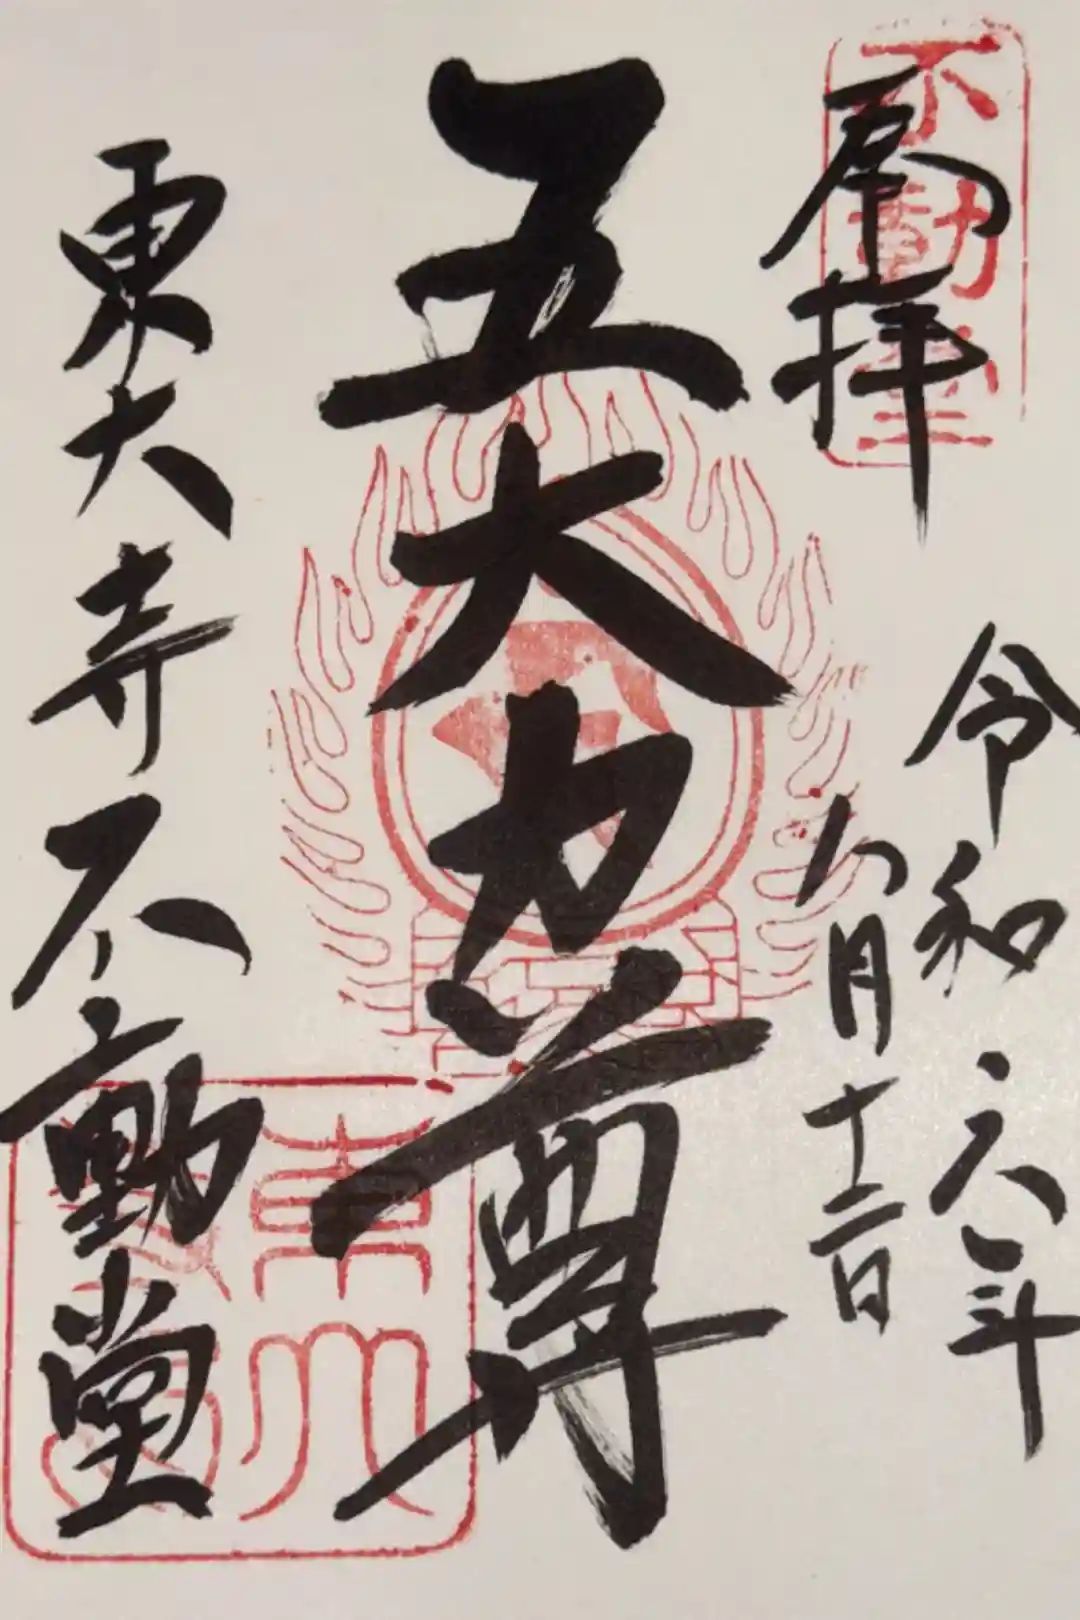 不動堂
拝
令和六年
八月十二日
五大力尊
東大寺不動堂
東大